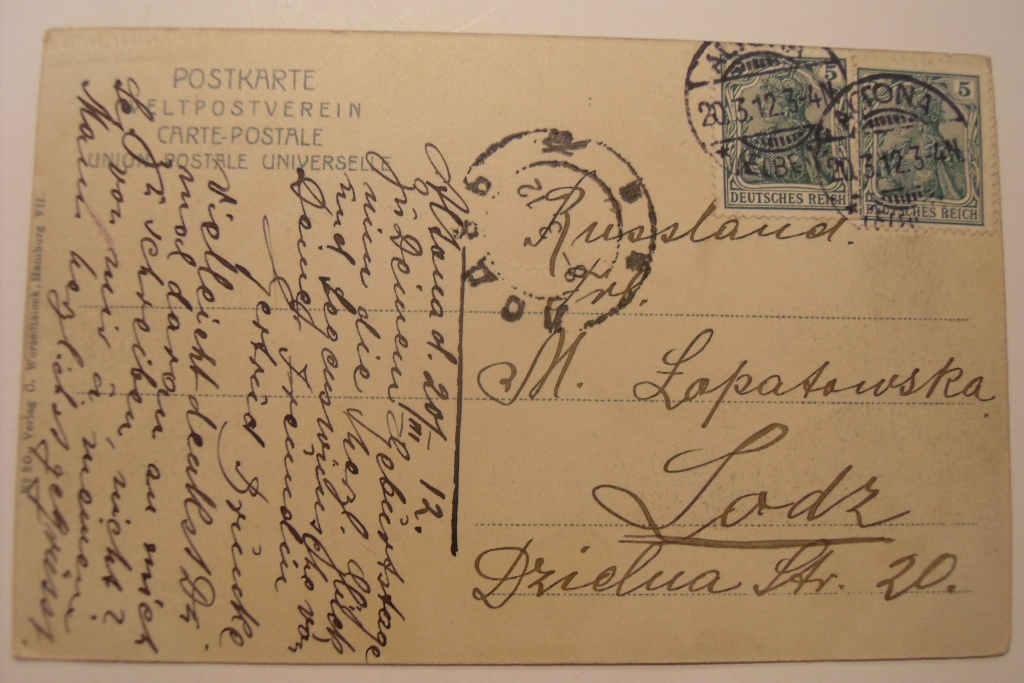 POSTKARTE
WELTPOSTVEREIN
CARTE-POSTALE
UNION POSTALE UNIVERSELLE
ALTONA
20.3.12.3-4N
ALTONA
20.3.12.3-4N
5
5
DEUTSCHES REICH
DEUTSCHES REICH
Russland.
Frl.
M. Łopatowska
Lodz
Dzielna Str. 20.
Altona d. 20/III 12.
Zu Deinem Geburtstage
nimm die herzl. Glück
und Segenswünsche von
Deiner Freundin
Gertrud Brincke
Vielleicht denkst Du
mal daran an mich
zu schreiben
von mir u. meiner
Mama herzlichst gegrüsst.
No 80. Verlag G. Worzedialeck, Hamburg VII.